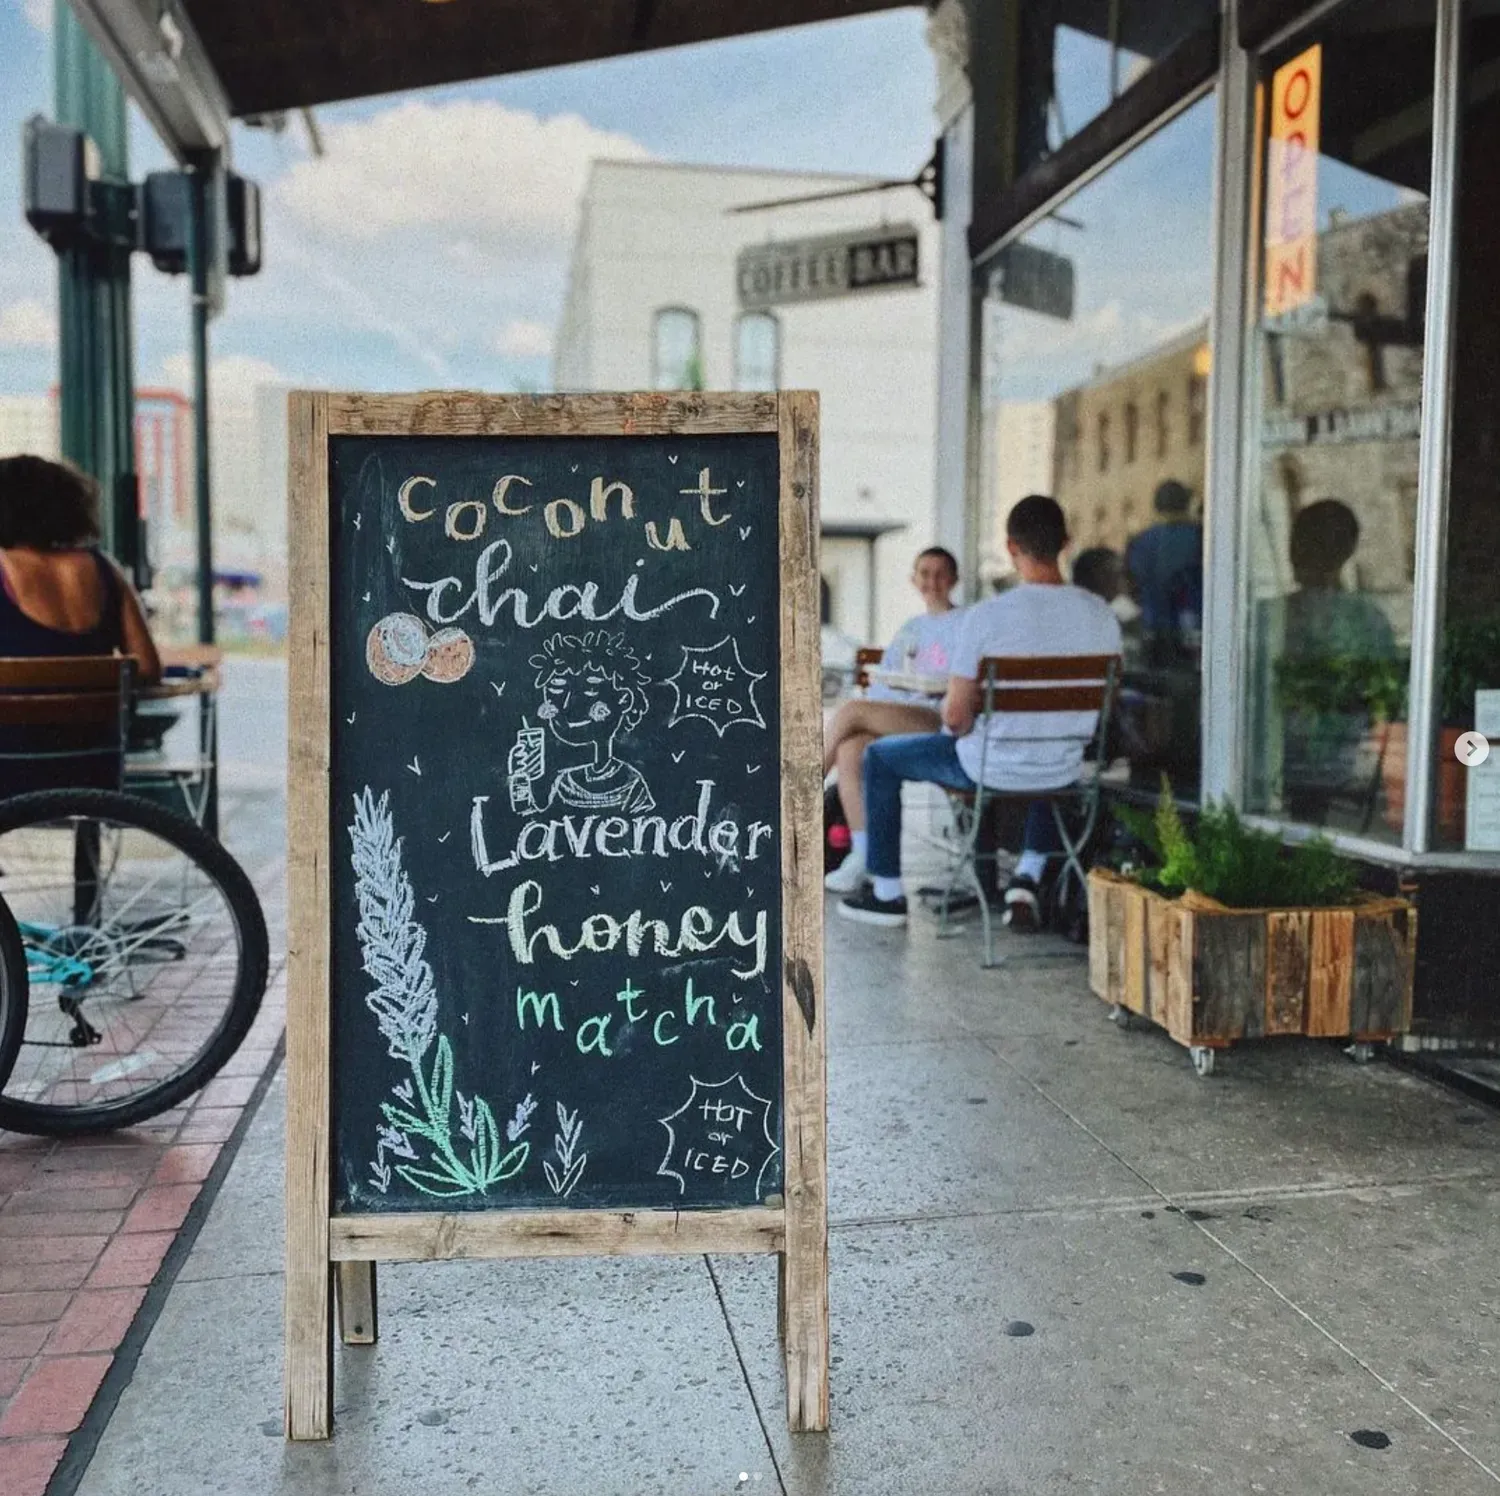 COFFEE BAR
OPEN
coconut
chai
Hot
or
ICED
Lavender
honey
matcha
HOT
or
ICED